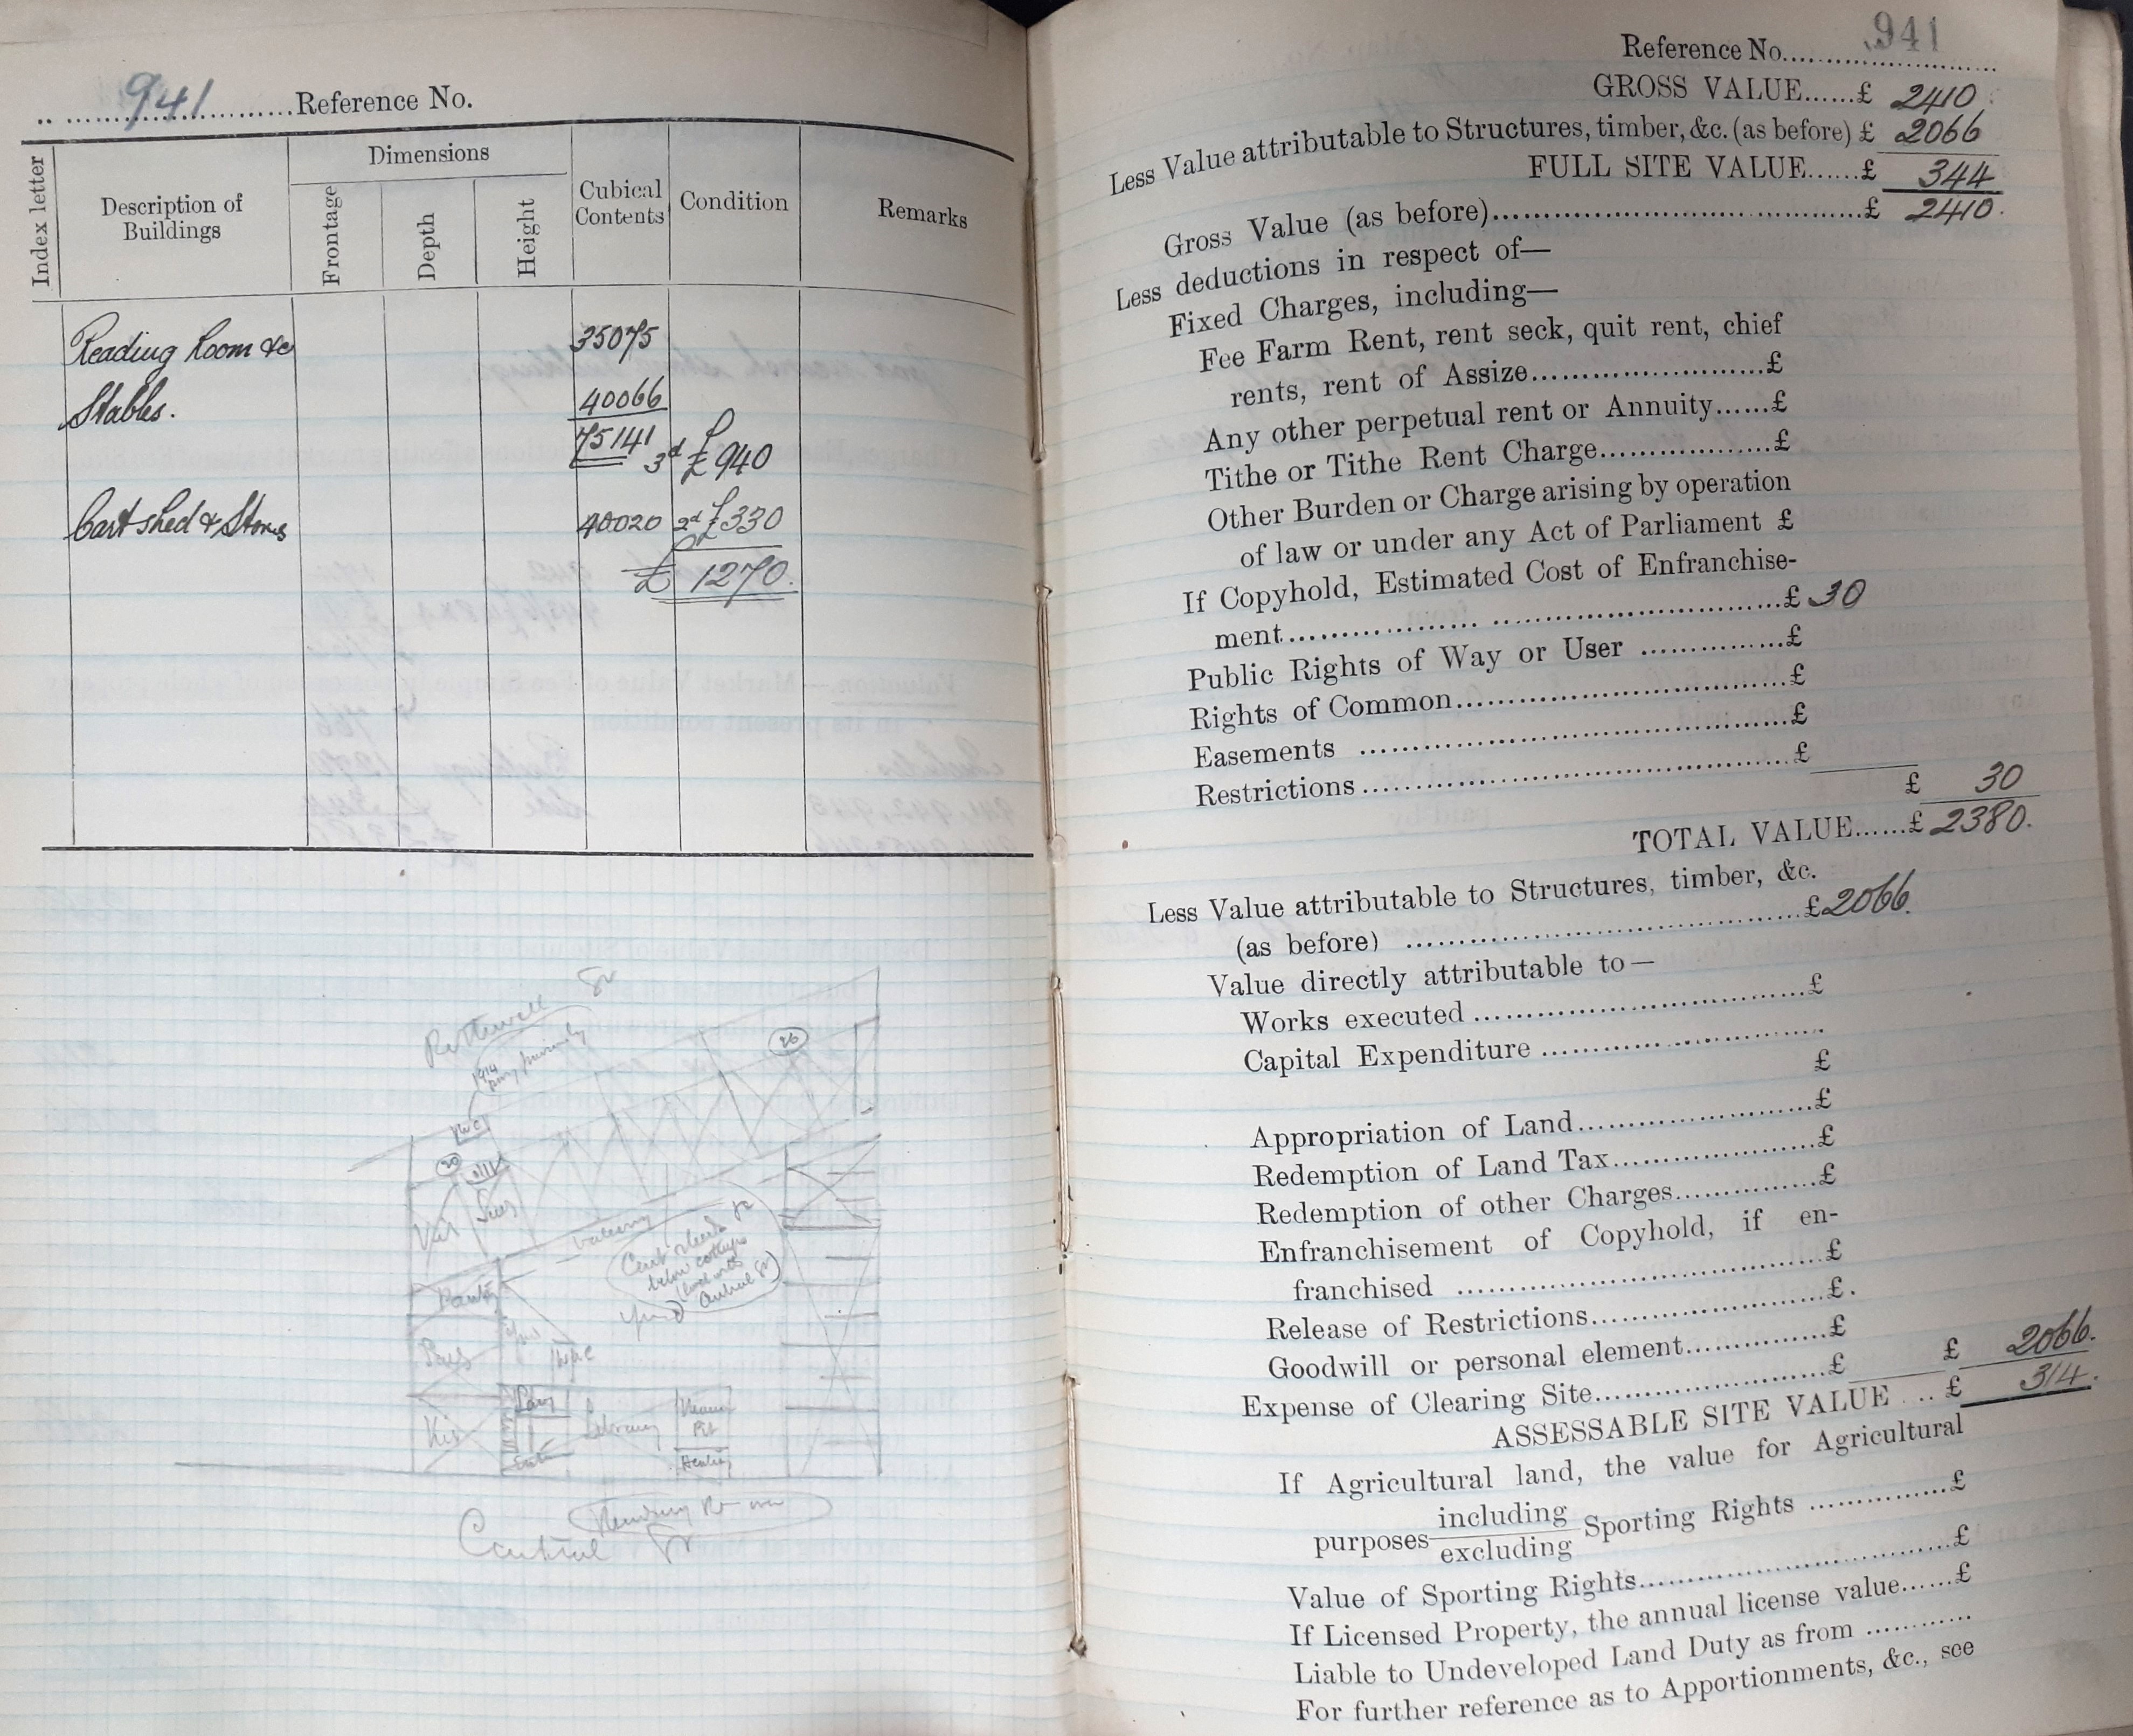 941 Reference No.
Index letter
Description of Buildings
Dimensions
Frontage
Depth
Height
Cubical Contents
Condition
Remarks
Reading Room &c 35075
Stables. 40066
75141 3d £940
Cart shed & Stores 40020 2d £330
£1270.
Rothwell St
1914
26
WC
20
Pantry
Cart sheds &c
below cottages
Central St)
yard
Library
Reading Room
Central St
Reference No. 941
GROSS VALUE......£ 2410
Less Value attributable to Structures, timber, &c. (as before) £ 2066
FULL SITE VALUE......£ 344
Gross Value (as before)......£ 2410.
Less deductions in respect of—
Fixed Charges, including—
Fee Farm Rent, rent seck, quit rent, chief
rents, rent of Assize......£
Any other perpetual rent or Annuity......£
Tithe or Tithe Rent Charge......£
Other Burden or Charge arising by operation
of law or under any Act of Parliament £
If Copyhold, Estimated Cost of Enfranchise-
ment......£ 30
Public Rights of Way or User ......£
Rights of Common......£
Easements ......£
Restrictions ......£
£ 30
TOTAL VALUE......£ 2380.
Less Value attributable to Structures, timber, &c.
(as before) ......£ 2066.
Value directly attributable to—
Works executed ......£
Capital Expenditure ......
£
Appropriation of Land......£
Redemption of Land Tax......£
Redemption of other Charges......£
Enfranchisement of Copyhold, if en-
franchised ......£
Release of Restrictions......£.
Goodwill or personal element......£
Expense of Clearing Site......£
£ 2066.
ASSESSABLE SITE VALUE ..£ 314.
If Agricultural land, the value for Agricultural
purposes including excluding Sporting Rights ......£
Value of Sporting Rights......£
If Licensed Property, the annual license value......£
Liable to Undeveloped Land Duty as from ......
For further reference as to Apportionments, &c., see